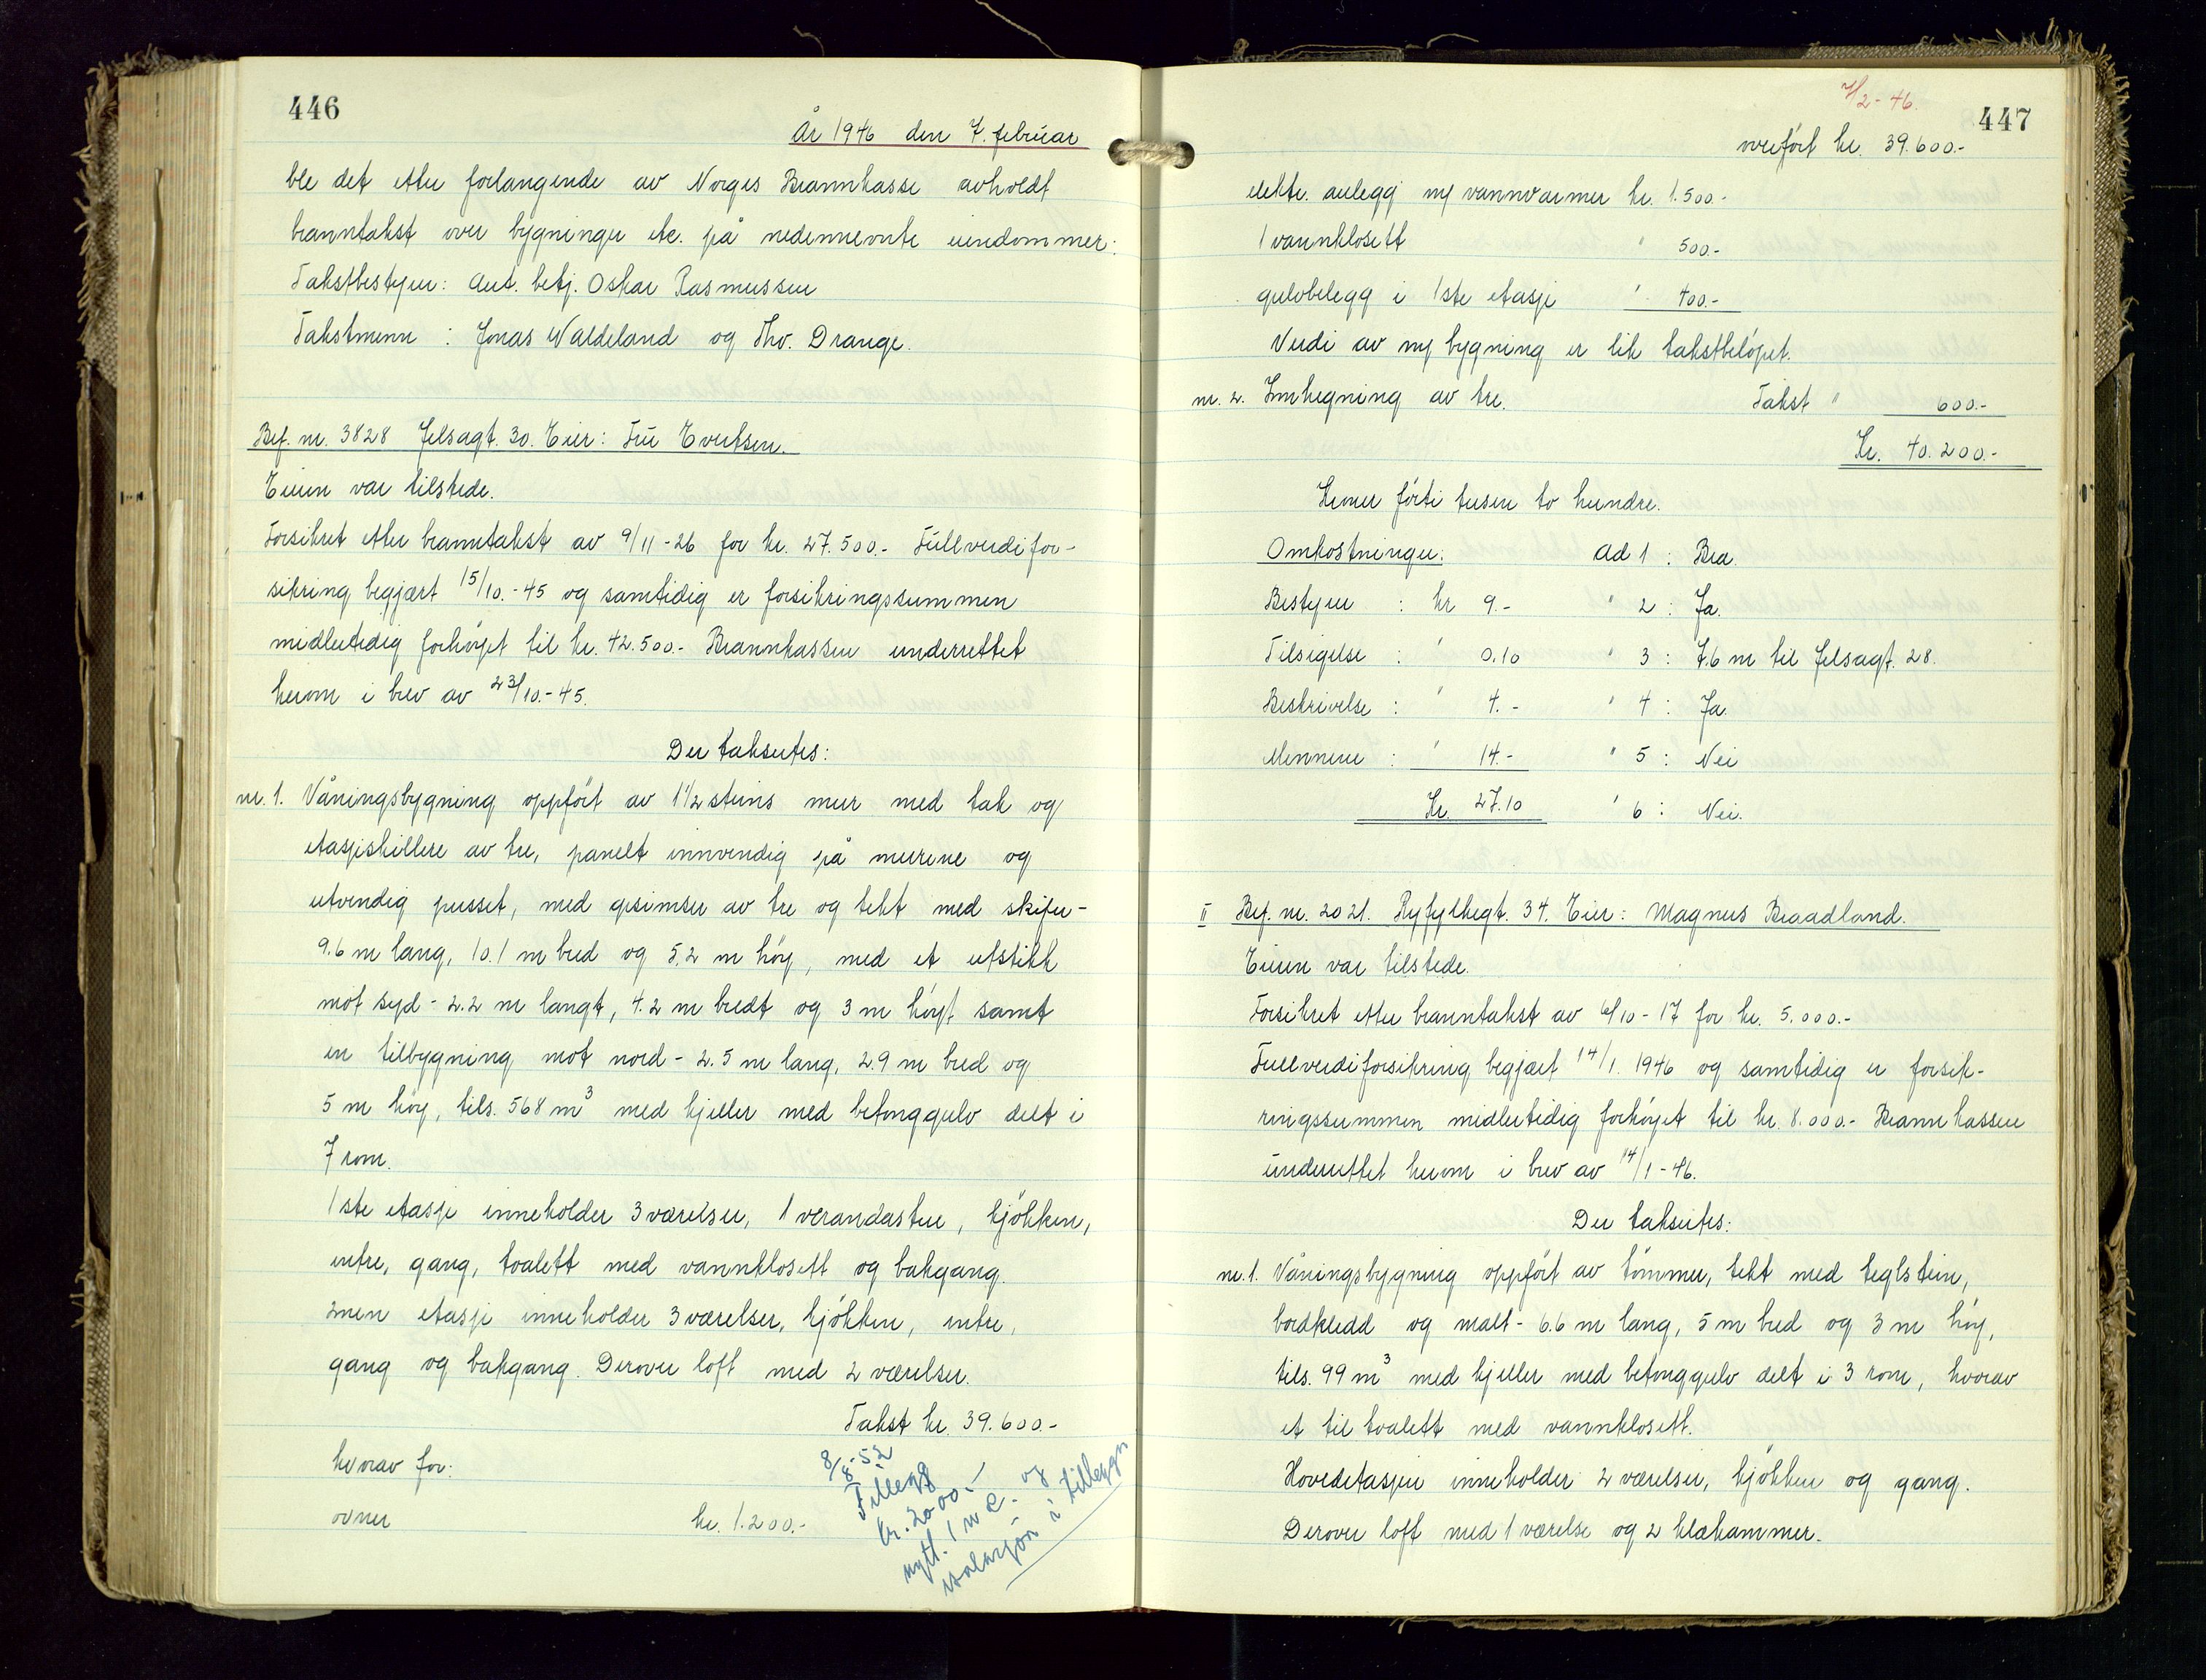 446
År 1946 den 7. februar
ble det etter forlangende av Norges Brannkasse avholdt
branntakst over bygninger etc. på nedennevnte eiendommer:
Takstbestyrer: Aut. betj. Oskar Rasmussen
Takstmenn : Jonas Waldeland og Thv. Drange.
Bef. nr. 3828 Jelsagt. 30. Eier: Fru Evertsen.
Eieren var tilstede.
Forsikret etter branntakst av 9/11-26 for kr. 27.500.- Fullverdifor-
sikring begjært 15/10.-45 og samtidig er forsikringssummen
midlertidig forhöyet til kr. 42.500.- Brannkassen underrettet
herom i brev av 23/10.-45.
Der takseres:
nr. 1. Våningsbygning oppfört av 1 1/2 steins mur med tak og
etasjeskillere av tre, panelt innvendig på murene og
utvendig pusset, med gesimser av tre og tekt med skifer-
9.6 m lang, 10.1 m bred og 5.2 m höy, med et utstikk
mot syd - 2.2 m langt, 4.2 m bredt og 3 m höyt samt
en tilbygning mot nord - 2.5 m lang, 2.9 m bred og
5 m höy, tils. 568 m³ med kjeller med betonggulv delt i
7 rom.
1ste etasje inneholder 3 værelser, 1 verandastue, kjökken,
entre, gang, toalett med vannklosett og bakgang.
2nen etasje inneholder 3 værelser, kjökken, entre,
gang og bakgang. Derover loft med 2 værelser.
Takst kr. 39.600.-
hvorav for:
ovner kr. 1.200.-
8/8-52
Tillegg
kr. 2000.-
nytt. 1 w c. og
isolasjon i tilbygn
7/2-46.
447
overfört kr. 39.600.-
elektr. anlegg m/ vannvarmer kr. 1.500.-
1 vannklosett " 500.-
gulvbelegg i 1ste etasje " 400.-
Verdi av ny bygning er lik takstbelöpet.
nr. 2. Innhegning av tre. Takst " 600.-
Kr. 40.200.-
Kroner förti tusen to hundre.
Omkostninger: ad 1 : Bra.
Bestyrer : kr 9.- " 2 : Ja.
Tilsigelse : " 0.10 " 3 : 7.6 m til Jelsagt. 28.
Beskrivelse : " 4.- " 4 : Ja.
Mennene : " 14.- " 5 : Nei
Kr. 27.10 " 6 : Nei.
II Bef. nr. 2021. Ryfylkegt. 34. Eier: Magnus Braadland.
Eieren var tilstede.
Forsikret etter branntakst av 6/10-17 for kr. 5.000.-
Fullverdiforsikring begjært 14/1. 1946 og samtidig er forsik-
ringssummen midlertidig forhöyet til kr. 8.000.- Brannkassen
underrettet herom i brev av 14/1-46.
Der takseres:
nr. 1. Våningsbygning oppfört av tömmer, tekt med teglstein,
bordkledd og malt - 6.6 m lang, 5 m bred og 3 m höy,
tils. 99 m³ med kjeller med betonggulv delt i 3 rom, hvorav
et til toalett med vannklosett.
Hovedetasjen inneholder 2 værelser, kjökken og gang.
Derover loft med 1 værelse og 2 klekammer.